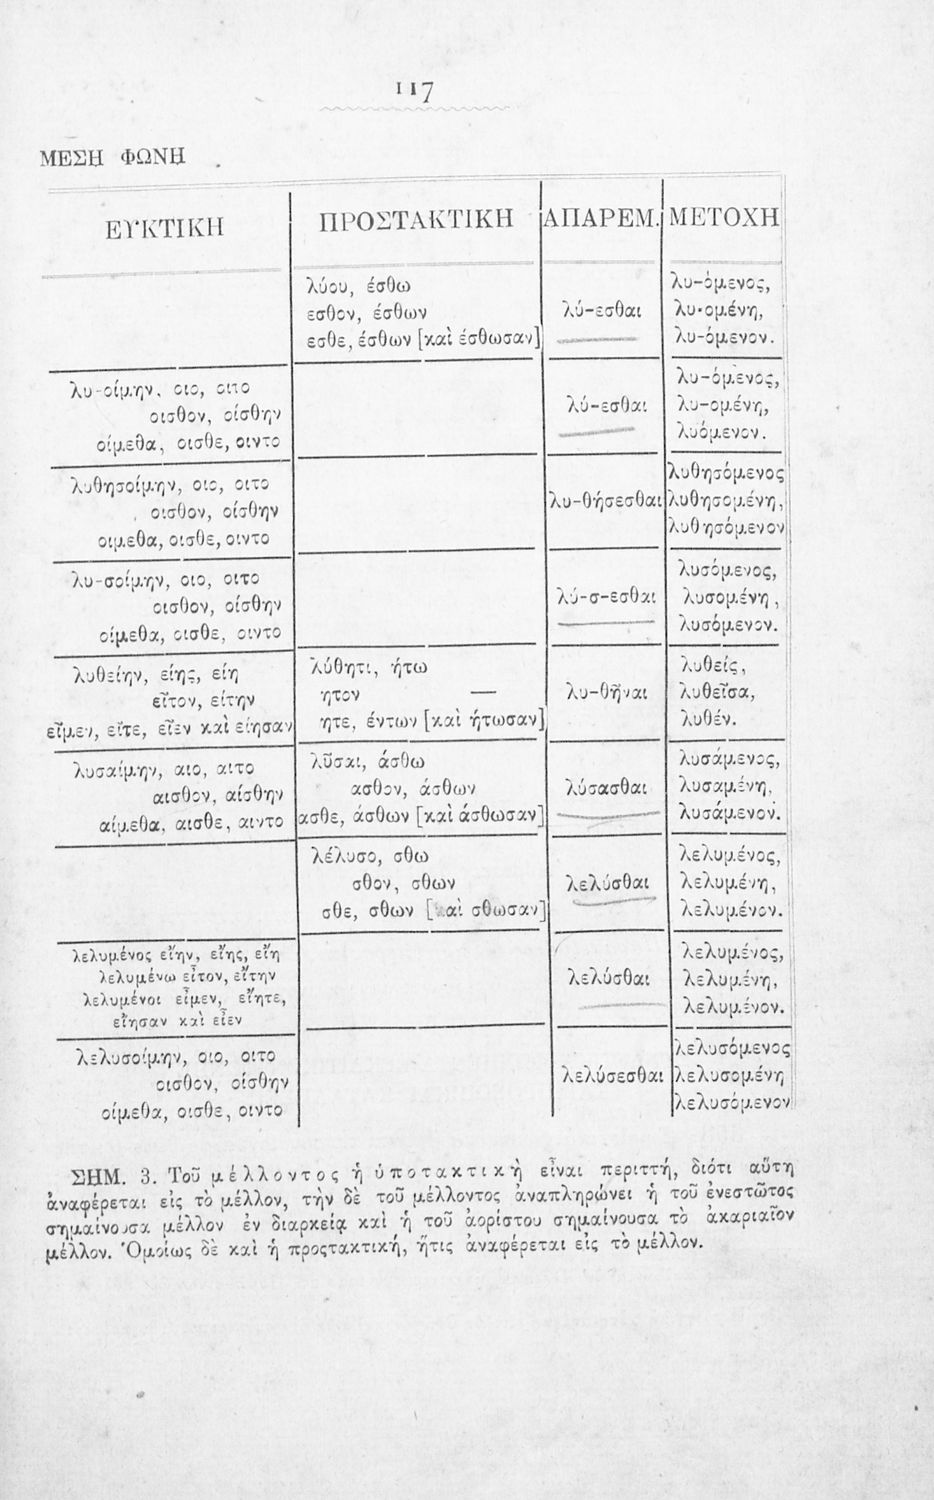 117
ΜΕΣΗ ΦΩΝΗ
ΕΥΚΤΙΚΗ ΠΡΟΣΤΑΚΤΙΚΗ ΑΠΑΡΕΜ. ΜΕΤΟΧΗ
λύου, έσθω
εσθον, έσθων
εσθε, έσθων [καὶ έσθωσαν]
λύ-εσθαι
λυ-όμενος,
λυ-ομένη,
λυ-όμενον.
λυ-οίμην, οιο, οιτο
οισθον, οίσθην
οίμεθα, οισθε, οιντο
λύ-εσθαι
λυ-όμενος,
λυ-ομένη,
λυόμενον.
λυθησοίμην, οιο, οιτο
οισθον, οίσθην
οιμεθα, οισθε, οιντο
λυ-θήσεσθαι
λυθησόμενος
λυθησομένη,
λυθησόμενον
λυ-σοίμην, οιο, οιτο
οισθον, οίσθην
οίμεθα, οισθε, οιντο
λύ-σ-εσθαι
λυσόμενος,
λυσομένη,
λυσόμενον.
λυθείην, είης, είη
εῖτον, είτην
εῖμεν, εῖτε, εῖεν καὶ είησαν
λύθητι, ήτω
ητον —
ητε, έντων [καὶ ήτωσαν]
λυ-θῆναι
λυθείς,
λυθεῖσα,
λυθέν.
λυσαίμην, αιο, αιτο
αισθον, αίσθην
αίμεθα, αισθε, αιντο
λῦσαι, άσθω
ασθον, άσθων
ασθε, άσθων [καὶ άσθωσαν]
λύσασθαι
λυσάμενος,
λυσαμένη,
λυσάμενον.
λέλυσο, σθω
σθον, σθων
σθε, σθων [καὶ σθωσαν]
λελύσθαι
λελυμένος,
λελυμένη,
λελυμένον.
λελυμένος εἴην, εἴης, εἴη
λελυμένω εἶτον, εἴτην
λελυμένοι εἶμεν, εἴητε,
εἴησαν καὶ εἶεν
λελύσθαι
λελυμένος,
λελυμένη,
λελυμένον.
λελυσοίμην, οιο, οιτο
οισθον, οίσθην
οίμεθα, οισθε, οιντο
λελύσεσθαι
λελυσόμενος
λελυσομένη
λελυσόμενον
ΣΗΜ. 3. Τοῦ μέλλοντος ἡ ὑποτακτικὴ εἶναι περιττή, διότι αὕτη
ἀναφέρεται εἰς τὸ μέλλον, τὴν δὲ τοῦ μέλλοντος ἀναπληρώνει ἡ τοῦ ἐνεστῶτος
σημαίνουσα μέλλον ἐν διαρκείᾳ καὶ ἡ τοῦ ἀορίστου σημαίνουσα τὸ ἀκαριαῖον
μέλλον. Ὁμοίως δὲ καὶ ἡ προςτακτική, ἥτις ἀναφέρεται εἰς τὸ μέλλον.